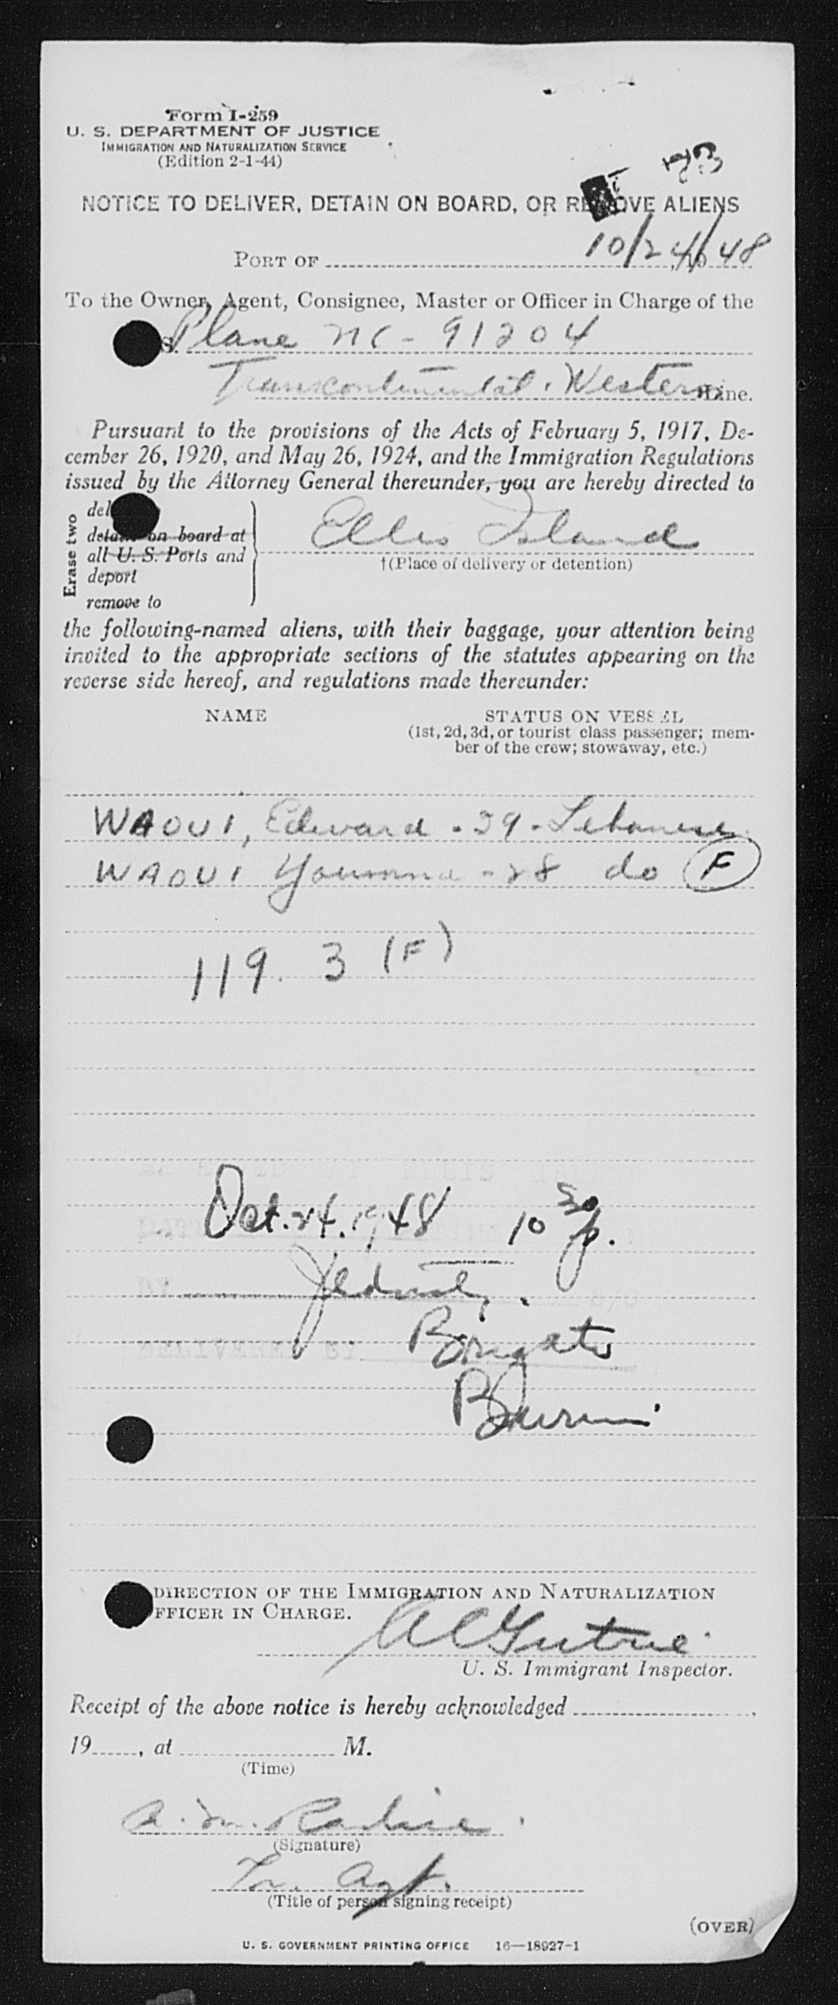 Form I-259
U. S. DEPARTMENT OF JUSTICE
IMMIGRATION AND NATURALIZATION SERVICE
(Edition 2-1-44)
NOTICE TO DELIVER, DETAIN ON BOARD, OR REMOVE ALIENS
10/24/48
PORT OF
To the Owner, Agent, Consignee, Master or Officer in Charge of the
S. Plane NC-91204
Transcontinental. Western Line.
Pursuant to the provisions of the Acts of February 5, 1917, De-
cember 26, 1920, and May 26, 1924, and the Immigration Regulations
issued by the Attorney General thereunder, you are hereby directed to
Erase two
del
detain on board at
all U. S. Ports and
deport
remove to
Ellis Island
†(Place of delivery or detention)
the following-named aliens, with their baggage, your attention being
invited to the appropriate sections of the statutes appearing on the
reverse side hereof, and regulations made thereunder:
NAME
STATUS ON VESSEL
(1st, 2d, 3d, or tourist class passenger; mem-
ber of the crew; stowaway, etc.)
WAOUI, Edward - 29 - Lebanese
WAOUI Youmna - 28 do (F)
119. 3 (F)
Oct. 24. 1948 10 30 p.
BY
DELIVERED BY
DIRECTION OF THE IMMIGRATION AND NATURALIZATION
FFICER IN CHARGE.
U. S. Immigrant Inspector.
Receipt of the above notice is hereby acknowledged
19 , at M.
(Time)
A. M.
(Signature)
Agt.
(Title of person signing receipt)
(OVER)
U. S. GOVERNMENT PRINTING OFFICE 16—18927-1